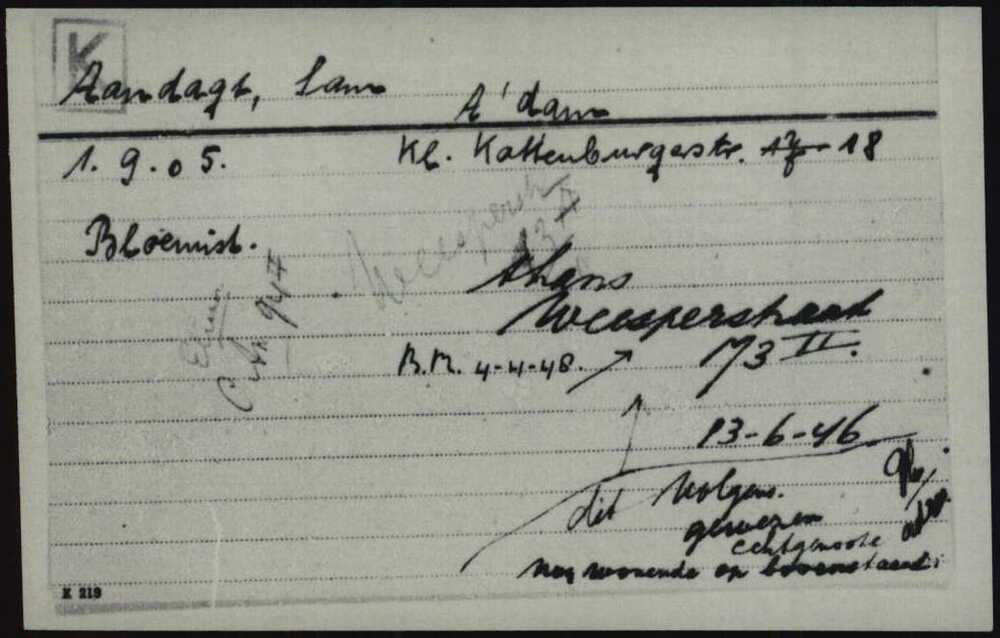 K
Aandagt, Sam
A'dam
1.9.05.
Kl. Kattenburgerstr. 17 18
Bloemist.
Weesperstr
73 II
thans
Weesperstraat
173 II.
B.R. 4-4-48.
13-6-46
dit Volgens.
gewezen
echtgenoote
nog wonende op bovenstaand
K 219